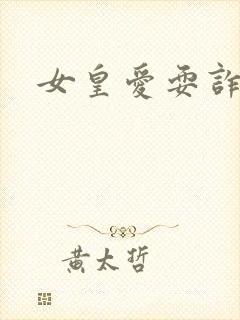 女皇愛耍詐
黃太哲